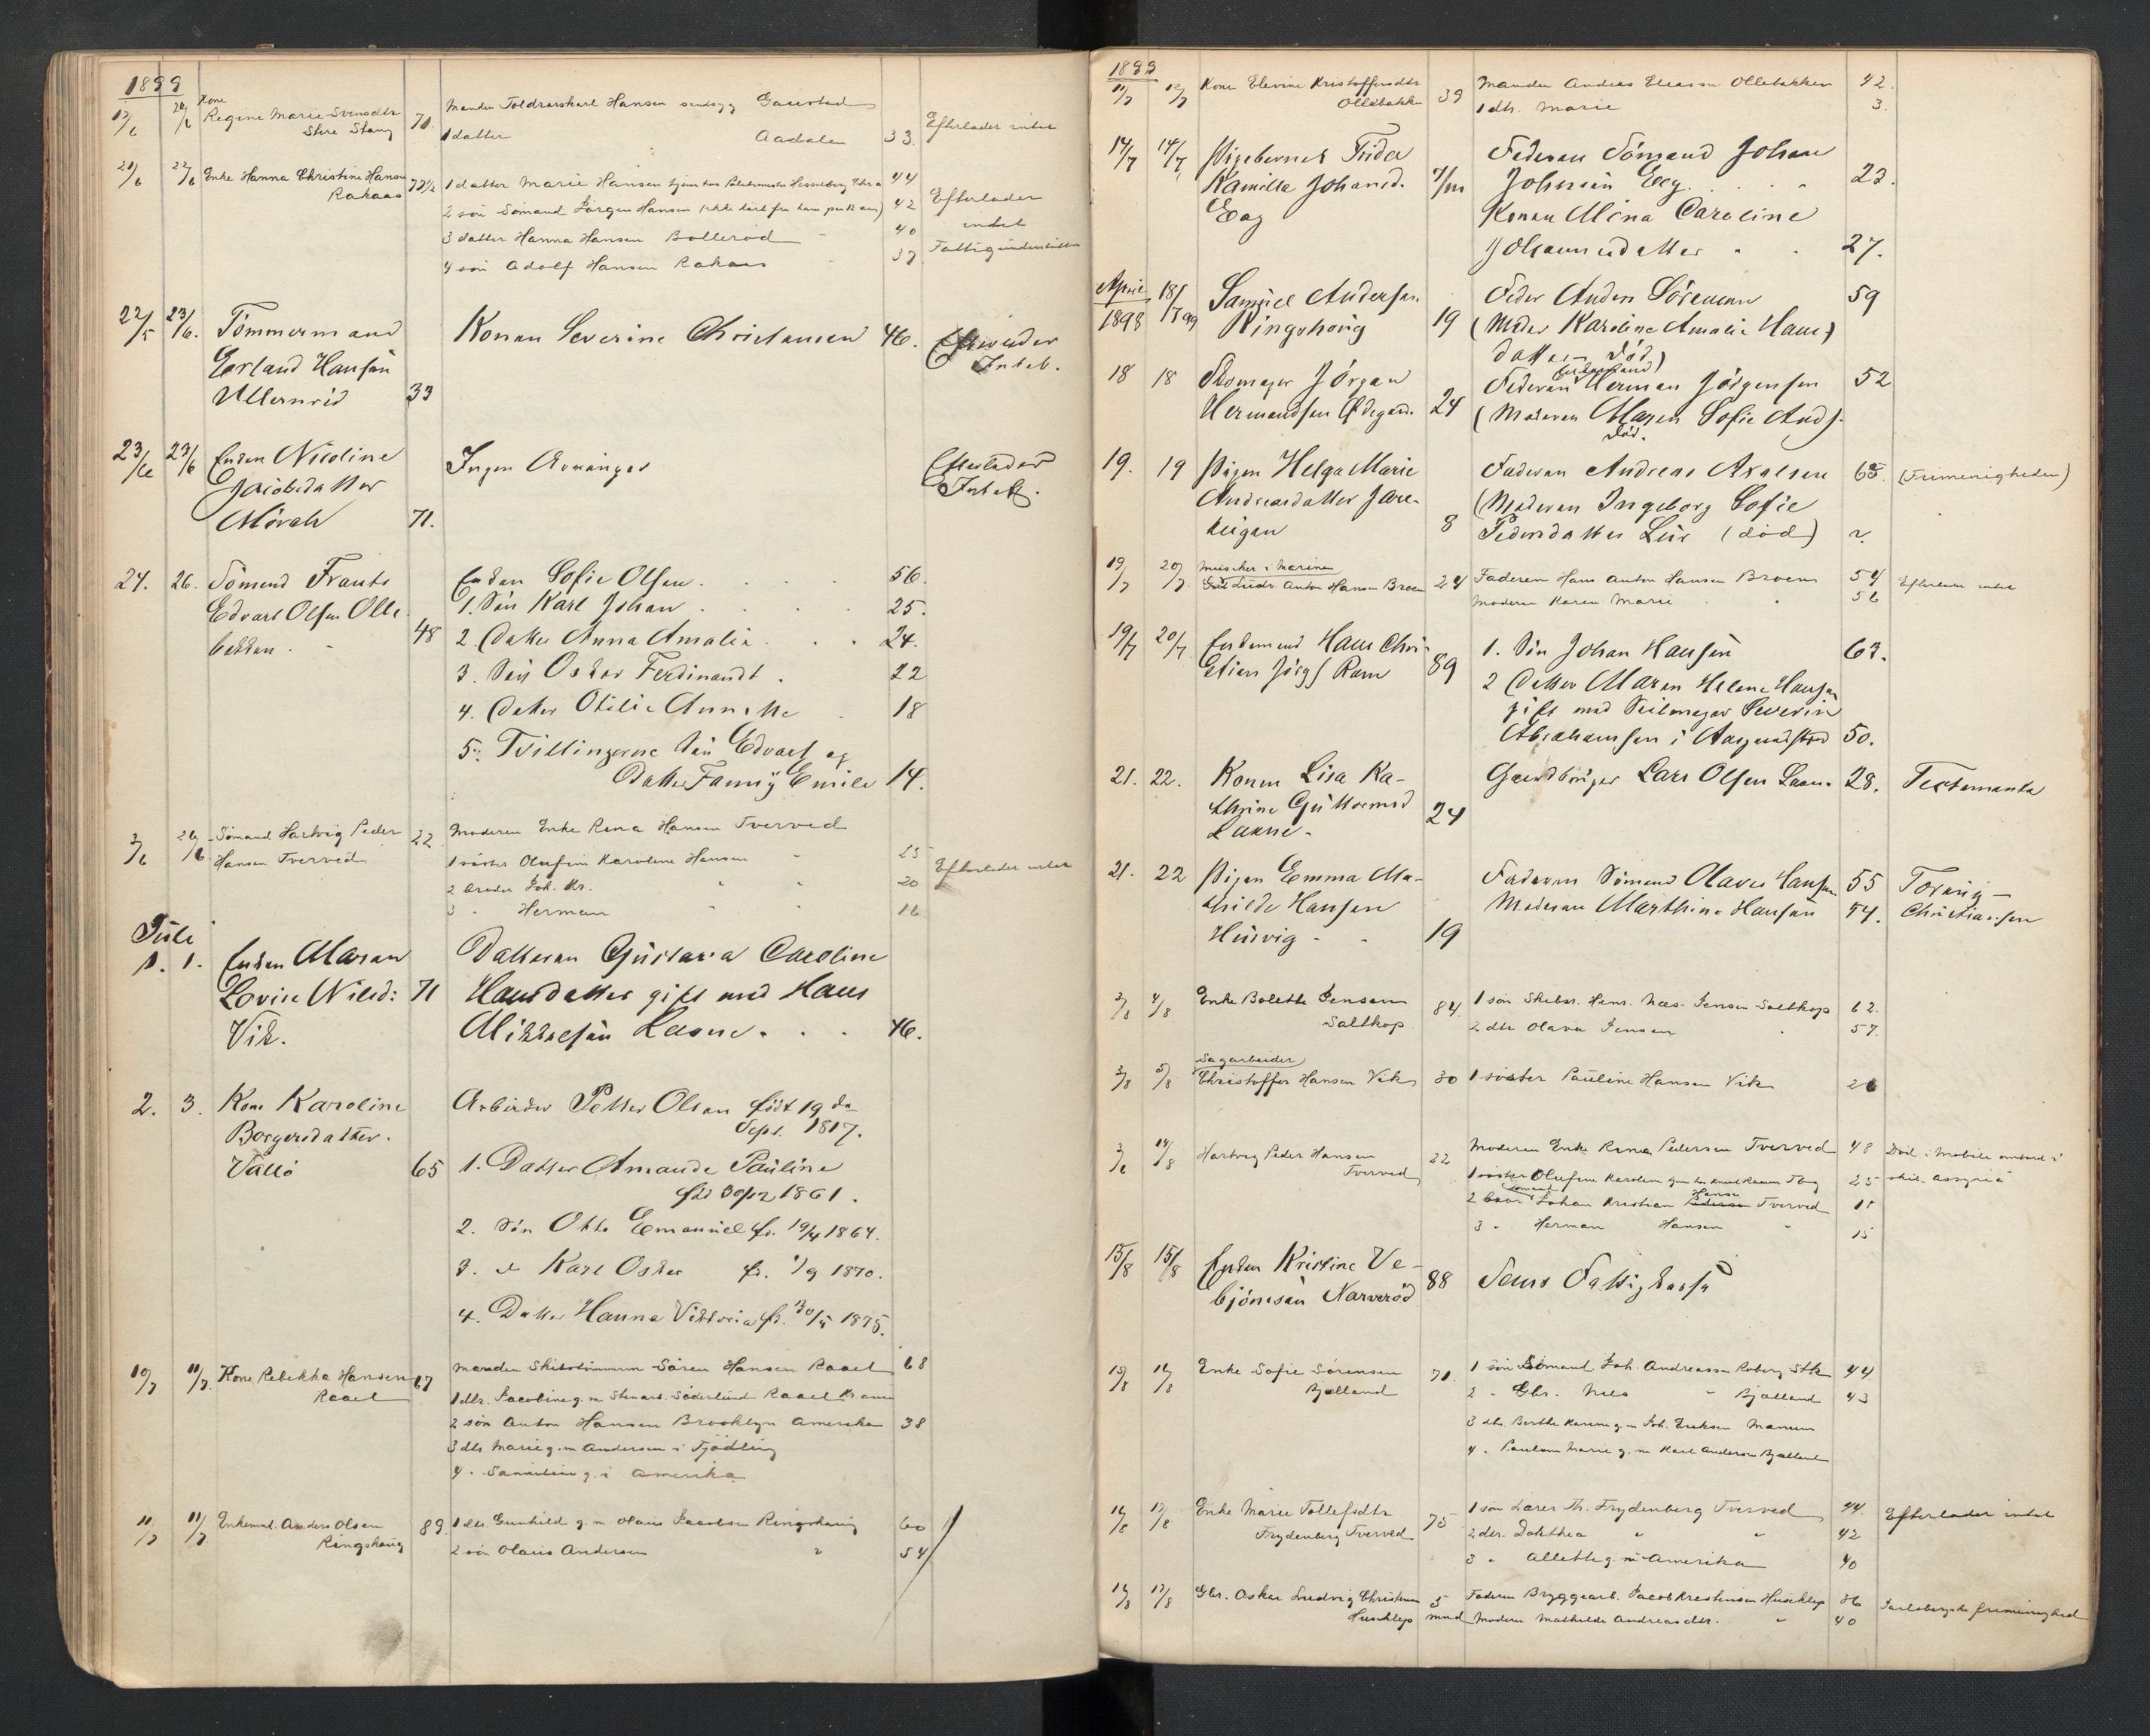 1899
19/6 20/6 Kone
Regine Marie Svensdtr 71. Manden Toldrorskarl Hansen sindssyg Gaustad
Store Stang 1 datter Aadalen 33. Efterlader intet
21/6 22/6 Enke Hanna Christine Hansen 72½ 1 datter Marie Hansen tjener hos 44
Rakaas 2 søn Sømand Jørgen Hansen (ikke hørt fra ham paa 12 aar) 42 Efterlader
3 datter Hanna Hansen Bollerød 40 intet
4 søn Adolf Hansen Rakaas 37 Fattigunderstøttet
22/5 23/6. Tömmermand Konen Severine Christensen 46. Efterlader
Intet.
Gerland Hansen
Ullernrød 33
23/6 23/6 Enken Nicoline Ingen Arvinger Efterlader
Jacobsdatter Intet.
71.
24. 26. Sömand Frants Enken Sofie Olsen . . . 56.
Edvart Olsen Olle- 1. Sön Karl Johan . . . . 25.
bakken . 48 2. Datter Anna Amalia . . . 24.
3. Sön Oskar Ferdinandt . 22
4. Datter Otilie Annette . 18
5. Tvillingerne Sön Edvart og
Datter Fanny Emilie 14.
3/6 26/6 Sømand Hartvig Peder 22 Moderen Enke Rena Hansen Tverved
Hansen Tverved 1 søster Olufine Karoline Hansen 25 Efterlader intet
2 broder Joh. Kr. " " 20
3 " Herman " " 16
Juli
1. 1. Enken Maren Datteren Gustava Caroline
Lovise Nilsd: 71 Hansdatter gift med Hans
Vik. Mikkelsen Lasne . . . 46.
2. 3. Kone Karoline Arbeider Petter Olsen födt 19de
Borgersdatter. Sept. 1817.
Vallö 65 1. Datter Amanda Pauline
fö 30/12 1861.
2. Sön Otto Emanuel fö. 19/4 1864.
3. do Karl Oskar fö. 1/9 1870.
4. Datter Hanna Viktoria fö. 30/5 1875.
10/7 11/7. Kone Rebekka Hansen 67 Manden Skibstømmerm Søren Hansen Raael 68
Raael 1 dtr. Jacobine g. m Stenarb. Søderlund Raael
2 søn Anton Hansen Brooklyn Amerika 38
3 dtr Marie g. m Andersen i Tjødling
4 " g. i Amerika
11/7 11/7. Enkemd. Anders Olsen 89. 1 dtr. Gunhild g. m Olaus Jacobsen Ringshaug 60
Ringshaug 2 søn Olaus Andersen " 54
1899
11/7 12/7 Kone Elevine Kristoffersdtr 39 Manden Andreas Eliassen Ollebakken 42.
Ollebakken 1 dtr. Marie 3.
14/7 14/7 Pigebarnet Frida Faderen Sömand Johan
Kamilla Johansd. 7/m Johnsen Eeg . . . 23.
Eeg Konen Mina Caroline
Johannesdatter . . 27.
April 18/7 99 Samuel Andersen Fader Anders Sörensen 59
1898 Ringshoug 19 (Moder Karoline Amalie Hans)
datter död)
18 18 Skomager Jörgen Faderen (Enkemand) Herman Jörgensen 52
Hermandsen Ødegard. 24 (Moderen Maren Sofie And).
Död.
19. 19 Pigen Helga Marie Faderen Andreas Axelsen 65. (Frimenigheden)
Andreasdatter Jare- (Moderen Ingeborg Sofie
teigen 8 Pedersdatter Leir (död) "
19/7 20/7 Musiker i Marinen
Anton Hansen Broen 24 Faderen Hans Anton Hansen Broen 54 Efterlader intet
Moderen Karen Marie " 56
19/7 20/7 Enkemand Hans Chri- 1. Sön Johan Hansen 63.
stian Jörgs Ram 89 2 Datter Maren Helene Hansen
gift med Seilmager Severin
Abrahamsen i Aasgaardstrand 50.
21. 22. Konen Lisa Ka- Gaardbruger Lars Olsen 28. Testamente
thrine Guttormsd 24
21. 22 Pigen Emma Ma- Faderen Sömand Olaves Hansen 55 Tor
thilde Hansen Moderen Marthine Hansen 54. Christiansen
Husvig - . 19
2/8 4/8 Enke Bolette Jensen 84. 1 søn Skibsr. Hans. Jensen Saltkop 62.
Saltkop 2 dtr Olava Jensen " 57.
3/8 5/8 Sagarbeider
Christoffer Hansen Vik 30 1 søster Pauline Hansen Vik 26
3/6 14/8 Hartvig Peder Hansen 22 Moderen Enke Rena Pedersen Tverved 48 Død i Mobile ombord i
Tverved 1 søster Olufine Karoline 25 skib. Assyria
2 bror Sømand Johan Kristian Hansen Tverved 18
3 " Herman Hansen " 15
15/8 15/8 Enken Kristine Ve- 88 Sems Fattigkasse
björnsen Narveröd
15/8 16/8 Enke Sofie Sørensen 71. 1 søn Sømand Joh. Andreassen Roberg Stk 44
Bjelland 2 " Gbr. Nils " Bjelland 43
3 dtr. Berthe Karine g. m Joh. Eriksen Manum
4 " Pauline Marie g. m Karl Andersen Bjelland
16/8 17/8 Enke Marie Tollefsdtr 75 1 søn Lærer Th. Frydenberg Tverved 44. Efterlader intet
Frydenberg Tverved 2 dtr. Dorthea " " 42
3 " Allette g. m Amerika 40
16/8 17/8 Gbr. Oskar Ludvig Christensen 5 Faderen Bryggearb. Jacob Kristensen Huseklep 36 Jarlsbergske frimenighed
Huseklep mnd Moderen Mathilde Andreasdtr. " 40